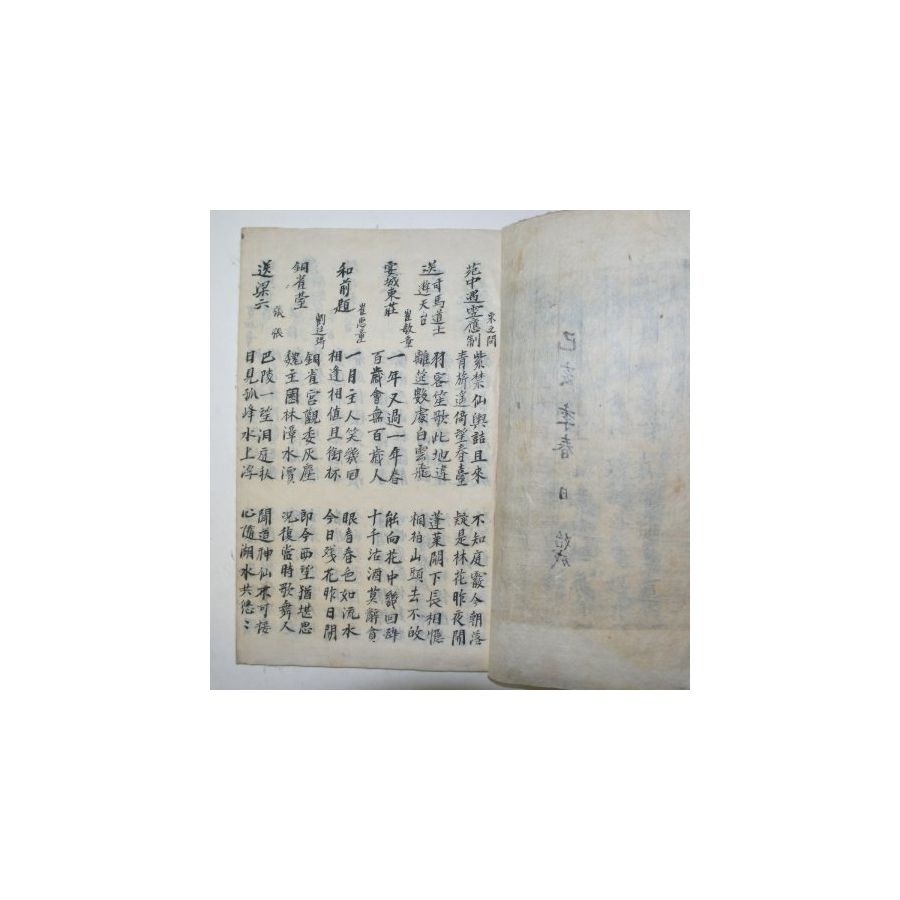 己亥季春日 始成
苑中遇雪應制
宋之問
紫禁仙輿詰且來
青旂遙倚望春臺
不知庭霰今朝落
疑是林花昨夜開
送司馬道士遊天台
羽客笙歌此地違
離筵數處白雲飛
蓬萊闕下長相憶
桐柏山頭去不歸
宴城東莊
崔敏童
一年又過一年春
百歲會無百歲人
能向花中幾回醉
十千沽酒莫辭貧
和前題
崔惠童
一月主人笑幾回
相逢相值且銜杯
眼看春色如流水
今日殘花昨日開
銅雀臺
劉廷琦
銅雀宮觀委灰塵
魏主園林漳水濱
即今西望猶堪思
況復當時歌舞人
送梁六
張
巴陵一望洞庭秋
日見孤峰水上浮
聞道神仙不可接
心隨湖水共悠〻